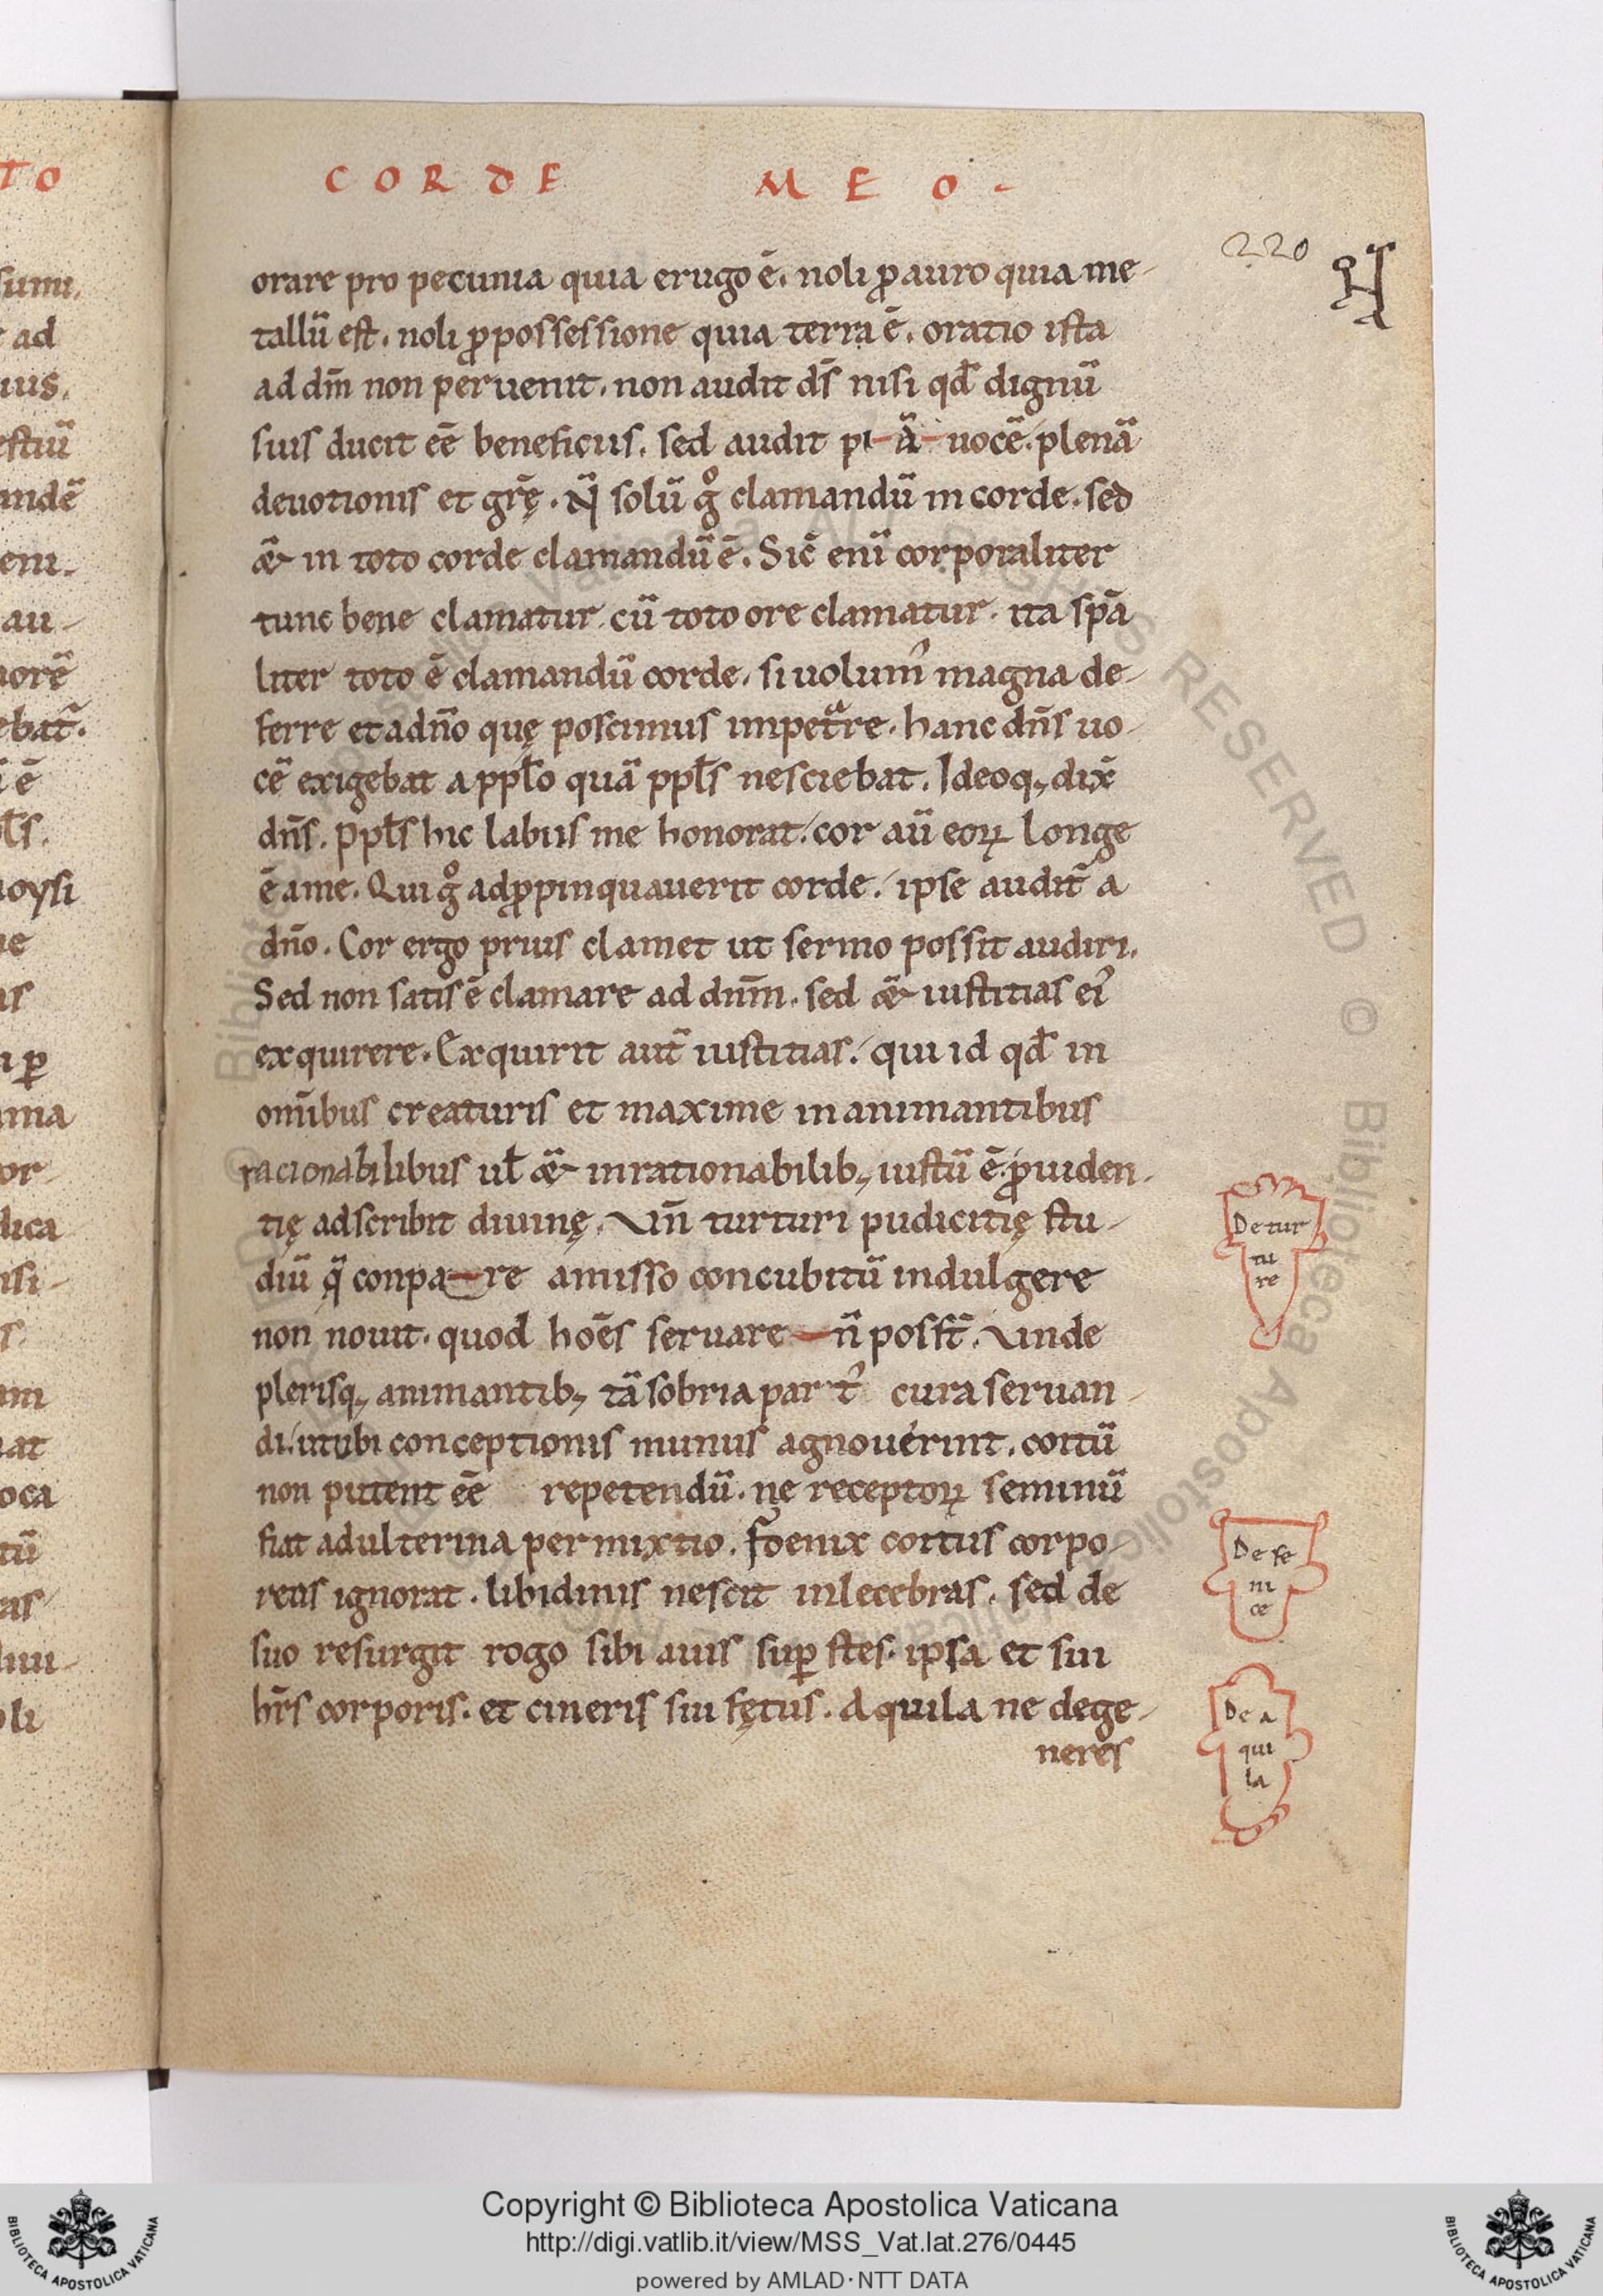 TO
CORDE MEO.
220
orare pro pecunia quia erugo ē. noli ꝓ auro quia me-
tallū est. noli ꝓ possessione quia terra ē. oratio ista
ad dm̄ non peruenit. non audit ds̄ nisi qd̄ dignū
suis ducit eē beneficiis. sed audit pi-ā uocē. plenā
deuotionis et grę̄. Nͣ̄ solū gͦ clamandū in corde. sed
&̄ in toto corde clamandū ē. Sic̄ enī corporaliter
tunc bene clamatur cū toto ore clamatur. ita spā
liter toto ē clamandū corde. si uolumꝰ magna de-
ferre et a dn̄o quę poscimus impetᷓre. hanc dn̄s uo-
cē exigebat a ppl̄o quā ppl̄s nesciebat. Ideoq; dix̄
dn̄s. Ppl̄s hic labiis me honorat. cor aū eoꝝ longe
ē a me. Qui gͦ adꝓpinquauerit corde. ipse audit̄ a
dn̄o. Cor ergo prius clamet ut sermo possit audiri.
Sed non satis ē clamare ad dnm̄. sed &̄ iustitias eiꝰ
exquirere. Exquirit aut̄ iustitias. qui id qd̄ in
omībus creaturis et maxime in animantibus
racionabilibus ul̄ &̄ inrationabilib; iustū ē. ꝓuiden-
tię adscribit diuinę. Un̄ turturi pudicitię stu-
diū q̄ conpa-re amisso concubitū indulgere
non nouit. quod hoēs seruare n̄ posst̄. Unde
plerisq; animantib; tā sobria par tꝰ cura seruan-
di. ut ubi conceptionis munus agnouerint. coitū
non putent eē repetendū. ne receptoꝝ seminū
fiat adulterina permixtio. Foenix coitus corpo-
reus ignorat. libidinis nescit inlecebras. sed de
suo resurgit rogo sibi auis suꝑstes. ipsa et sui
hr̄s corporis. et cineris sui fętus. Aquila ne dege-
neres
De tur
tu
re
De fe
ni
ce
De a
qui
la
Copyright © Biblioteca Apostolica Vaticana
http://digi.vatlib.it/view/MSS_Vat.lat.276/0445
powered by AMLAD·NTT DATA
BIBLIOTECA APOSTOLICA VATICANA
BIBLIOTECA APOSTOLICA VATICANA